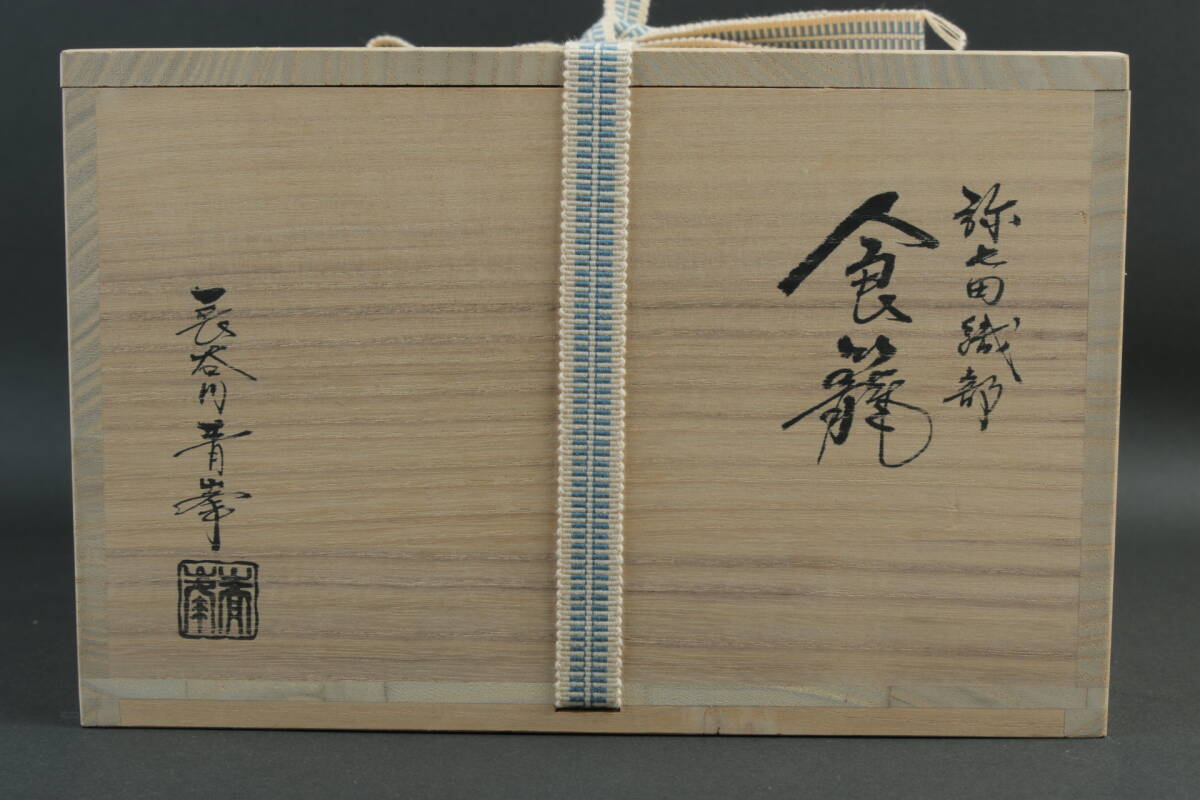 弥七田織部
食籠
長谷川青峯
青峯